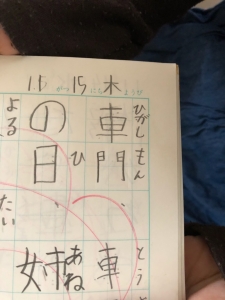 11 がつ 15 にち 木 ようび
ひがし もん とう
車門、車
ひ あね
の日、姉
よる たい